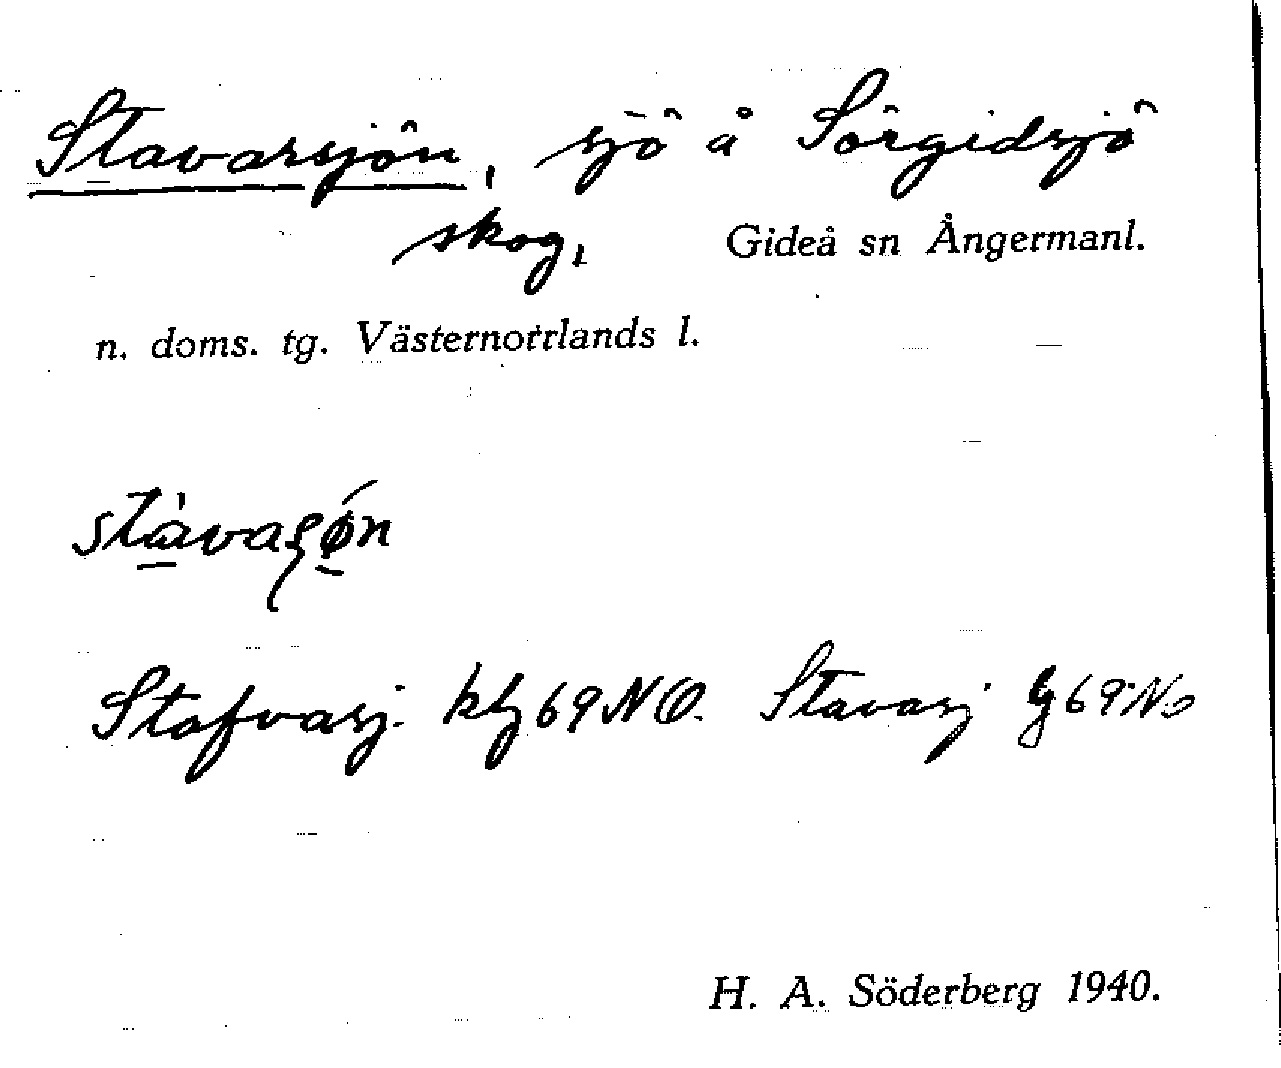 Stavarsjön, sjö å Sörgidsjö
skog, Gideå sn Ångermanl.
n. doms. tg. Västernorrlands l.
stàvaʂǿn
Stafvasj. klg 69 NO. Stavasj G 69 No
H. A. Söderberg 1940.